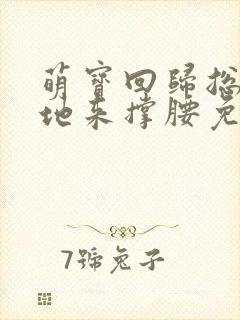 萌寶回歸總
地來撐腰免
7號兔子